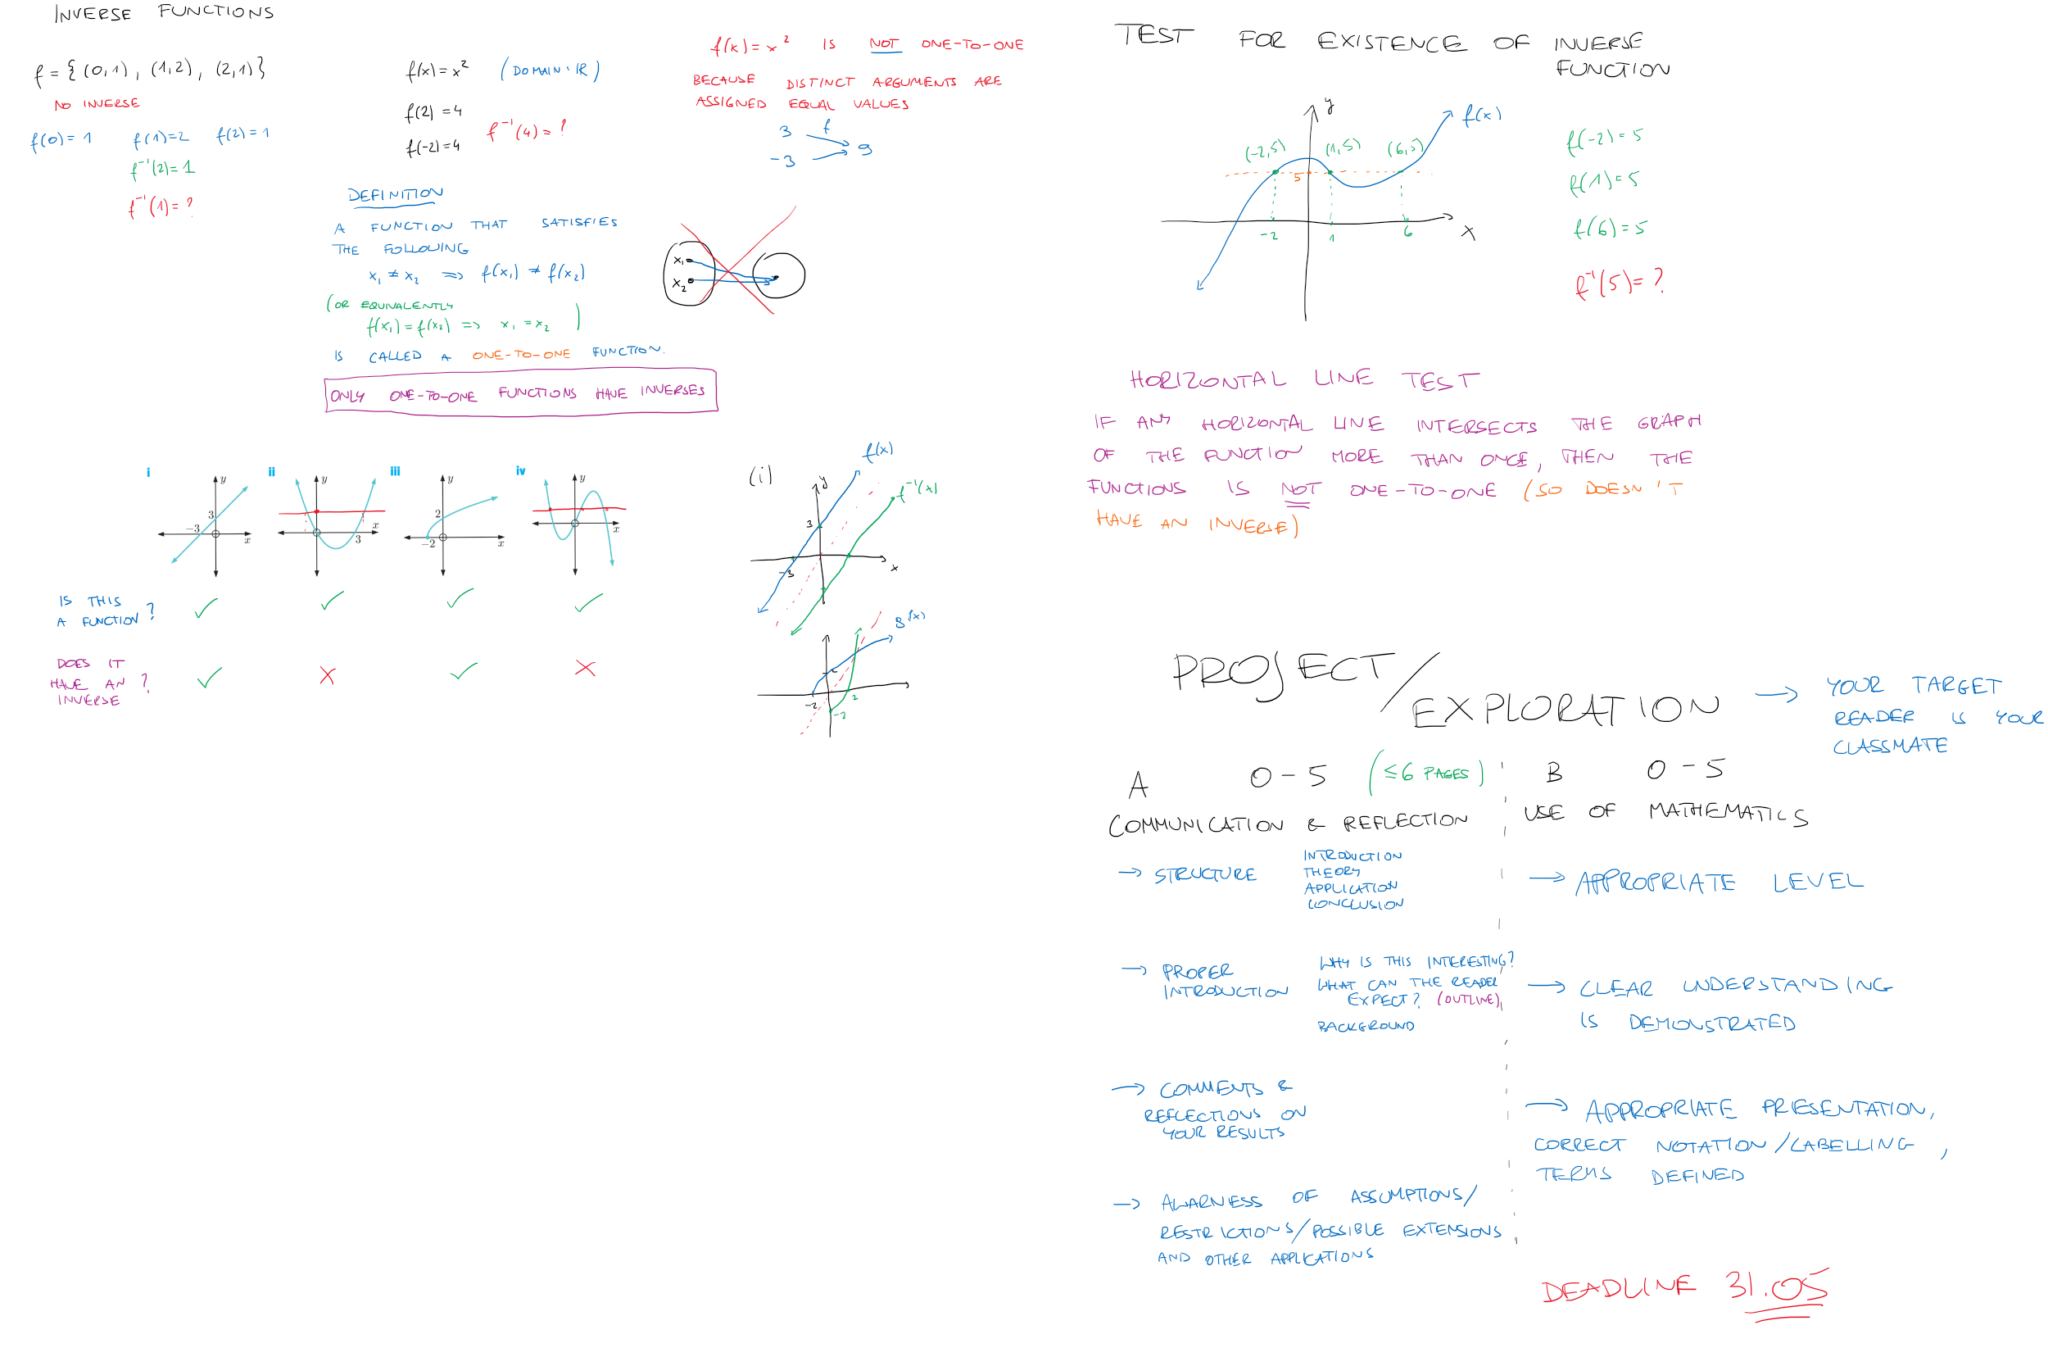 INVERSE FUNCTIONS
f = { (0,1) , (1,2) , (2,1) }
NO INVERSE
f(0) = 1 f(1)=2 f(2) = 1
f⁻¹(2) = 1
f⁻¹(1) = ?
f(x) = x² (DOMAIN: ℝ)
f(2) = 4
f(-2) = 4
f⁻¹(4) = ?
f(x) = x² IS NOT ONE-TO-ONE
BECAUSE DISTINCT ARGUMENTS ARE
ASSIGNED EQUAL VALUES
3 f
-3 9
DEFINITION
A FUNCTION THAT SATISFIES
THE FOLLOWING
x₁ ≠ x₂ => f(x₁) ≠ f(x₂)
(OR EQUIVALENTLY
f(x₁) = f(x₂) => x₁ = x₂ )
IS CALLED A ONE-TO-ONE FUNCTION.
x₁
x₂
ONLY ONE-TO-ONE FUNCTIONS HAVE INVERSES
i ii iii iv
y y y y
3 2
-3 x 3 x -2 x x
IS THIS
A FUNCTION ?
✓ ✓ ✓ ✓
DOES IT
HAVE AN ?
INVERSE
✓ X ✓ X
(i)
y f(x)
f⁻¹(x)
3
-3 x
g(x)
2
-2 2
-2
TEST FOR EXISTENCE OF INVERSE
FUNCTION
y f(x)
(-2,5) (1,5) (6,5)
5
-2 1 6 x
f(-2) = 5
f(1) = 5
f(6) = 5
f⁻¹(5) = ?
HORIZONTAL LINE TEST
IF ANY HORIZONTAL LINE INTERSECTS THE GRAPH
OF THE FUNCTION MORE THAN ONCE, THEN THE
FUNCTIONS IS NOT ONE-TO-ONE (SO DOESN'T
HAVE AN INVERSE)
PROJECT/
EXPLORATION → YOUR TARGET
READER IS YOUR
CLASSMATE
A 0 - 5 (≤6 PAGES)
COMMUNICATION & REFLECTION
→ STRUCTURE
INTRODUCTION
THEORY
APPLICATION
CONCLUSION
→ PROPER
INTRODUCTION
WHY IS THIS INTERESTING?
WHAT CAN THE READER
EXPECT? (OUTLINE)
BACKGROUND
→ COMMENTS &
REFLECTIONS ON
YOUR RESULTS
→ AWARNESS OF ASSUMPTIONS/
RESTRICTIONS/POSSIBLE EXTENSIONS
AND OTHER APPLICATIONS
B 0 - 5
USE OF MATHEMATICS
→ APPROPRIATE LEVEL
→ CLEAR UNDERSTANDING
IS DEMONSTRATED
→ APPROPRIATE PRESENTATION,
CORRECT NOTATION/LABELLING,
TERMS DEFINED
DEADLINE 31.05